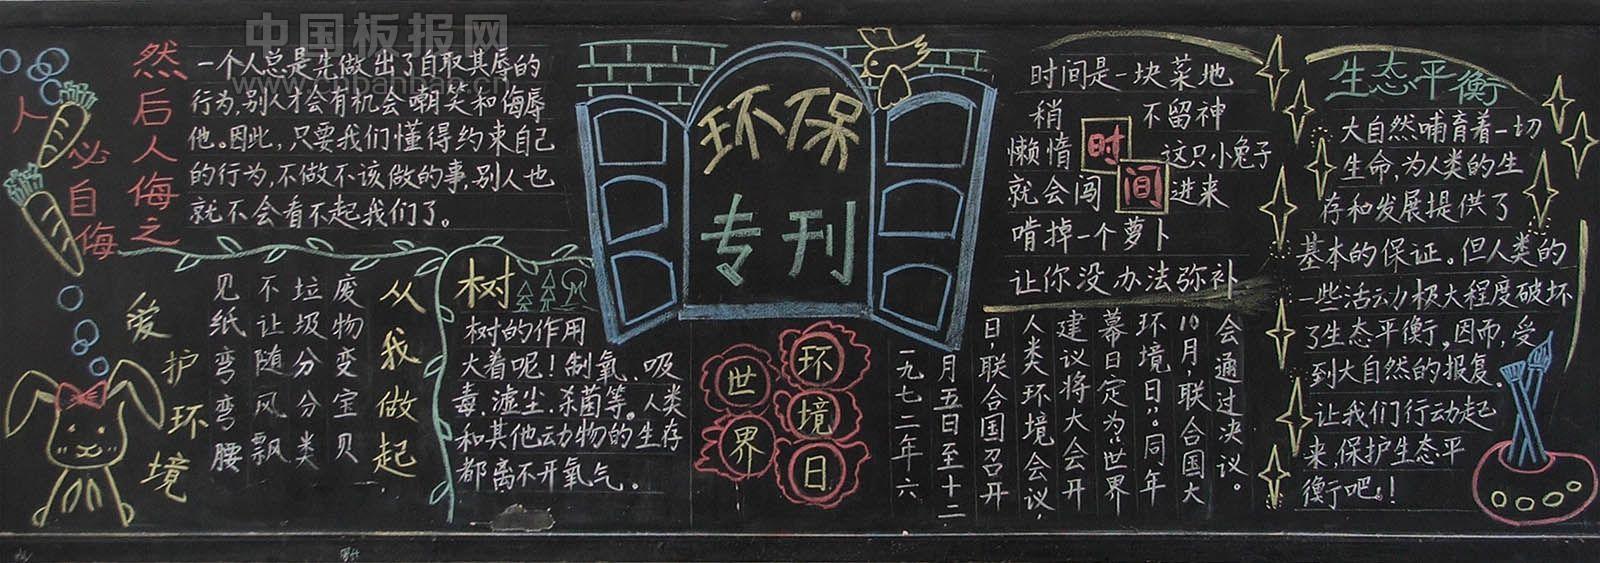 中国板报网
www.cnbanbao.cn
人必自侮
然后人侮之
一个人总是先做出了自取其辱的
行为,别人才会有机会嘲笑和侮辱
他。因此,只要我们懂得约束自己
的行为,不做不该做的事,别人也
就不会看不起我们了。
爱护环境
从我做起
废物变宝贝
垃圾分分类
不让随风飘
见纸弯弯腰
树
树的作用
大着呢!制氧、吸
毒、滤尘、杀菌等。人类
和其他动物的生存
都离不开氧气。
环保
专刊
世界
环境日
一九七二年六
月五日至十二
日,联合国召开
人类环境会议,
建议将大会开
幕日定为“世界
环境日”。同年
10月,联合国大
会通过决议。
时间是一块菜地
稍 不留神
懒惰 时 这只小兔子
就会闯 间 进来
啃掉一个萝卜
让你没办法弥补
生态平衡
大自然哺育着一切
生命,为人类的生
存和发展提供了
基本的保证。但人类的
一些活动极大程度破坏
了生态平衡。因而,受
到大自然的报复。
让我们行动起
来,保护生态平
衡吧!